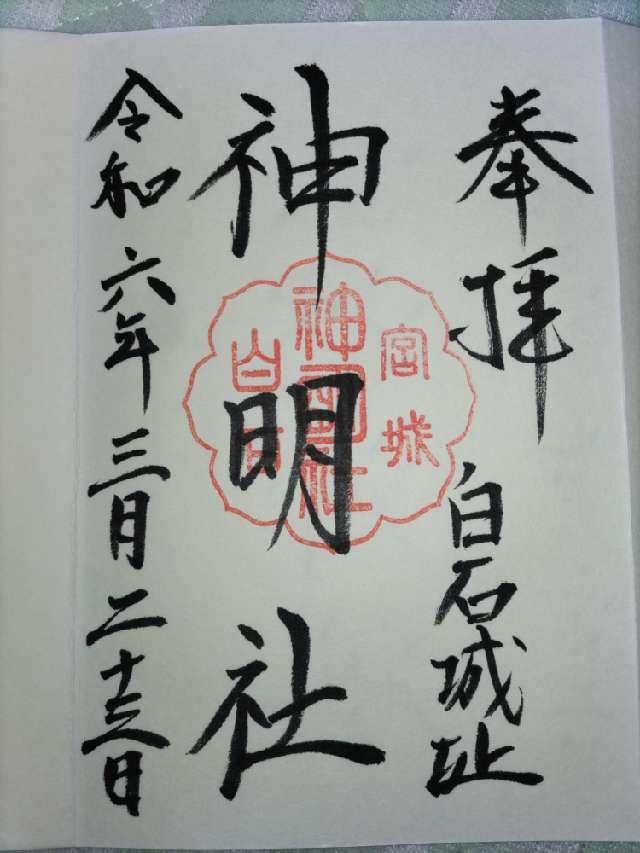 奉拝
白石城址
神明社
宮城
白石
令和六年三月二十三日